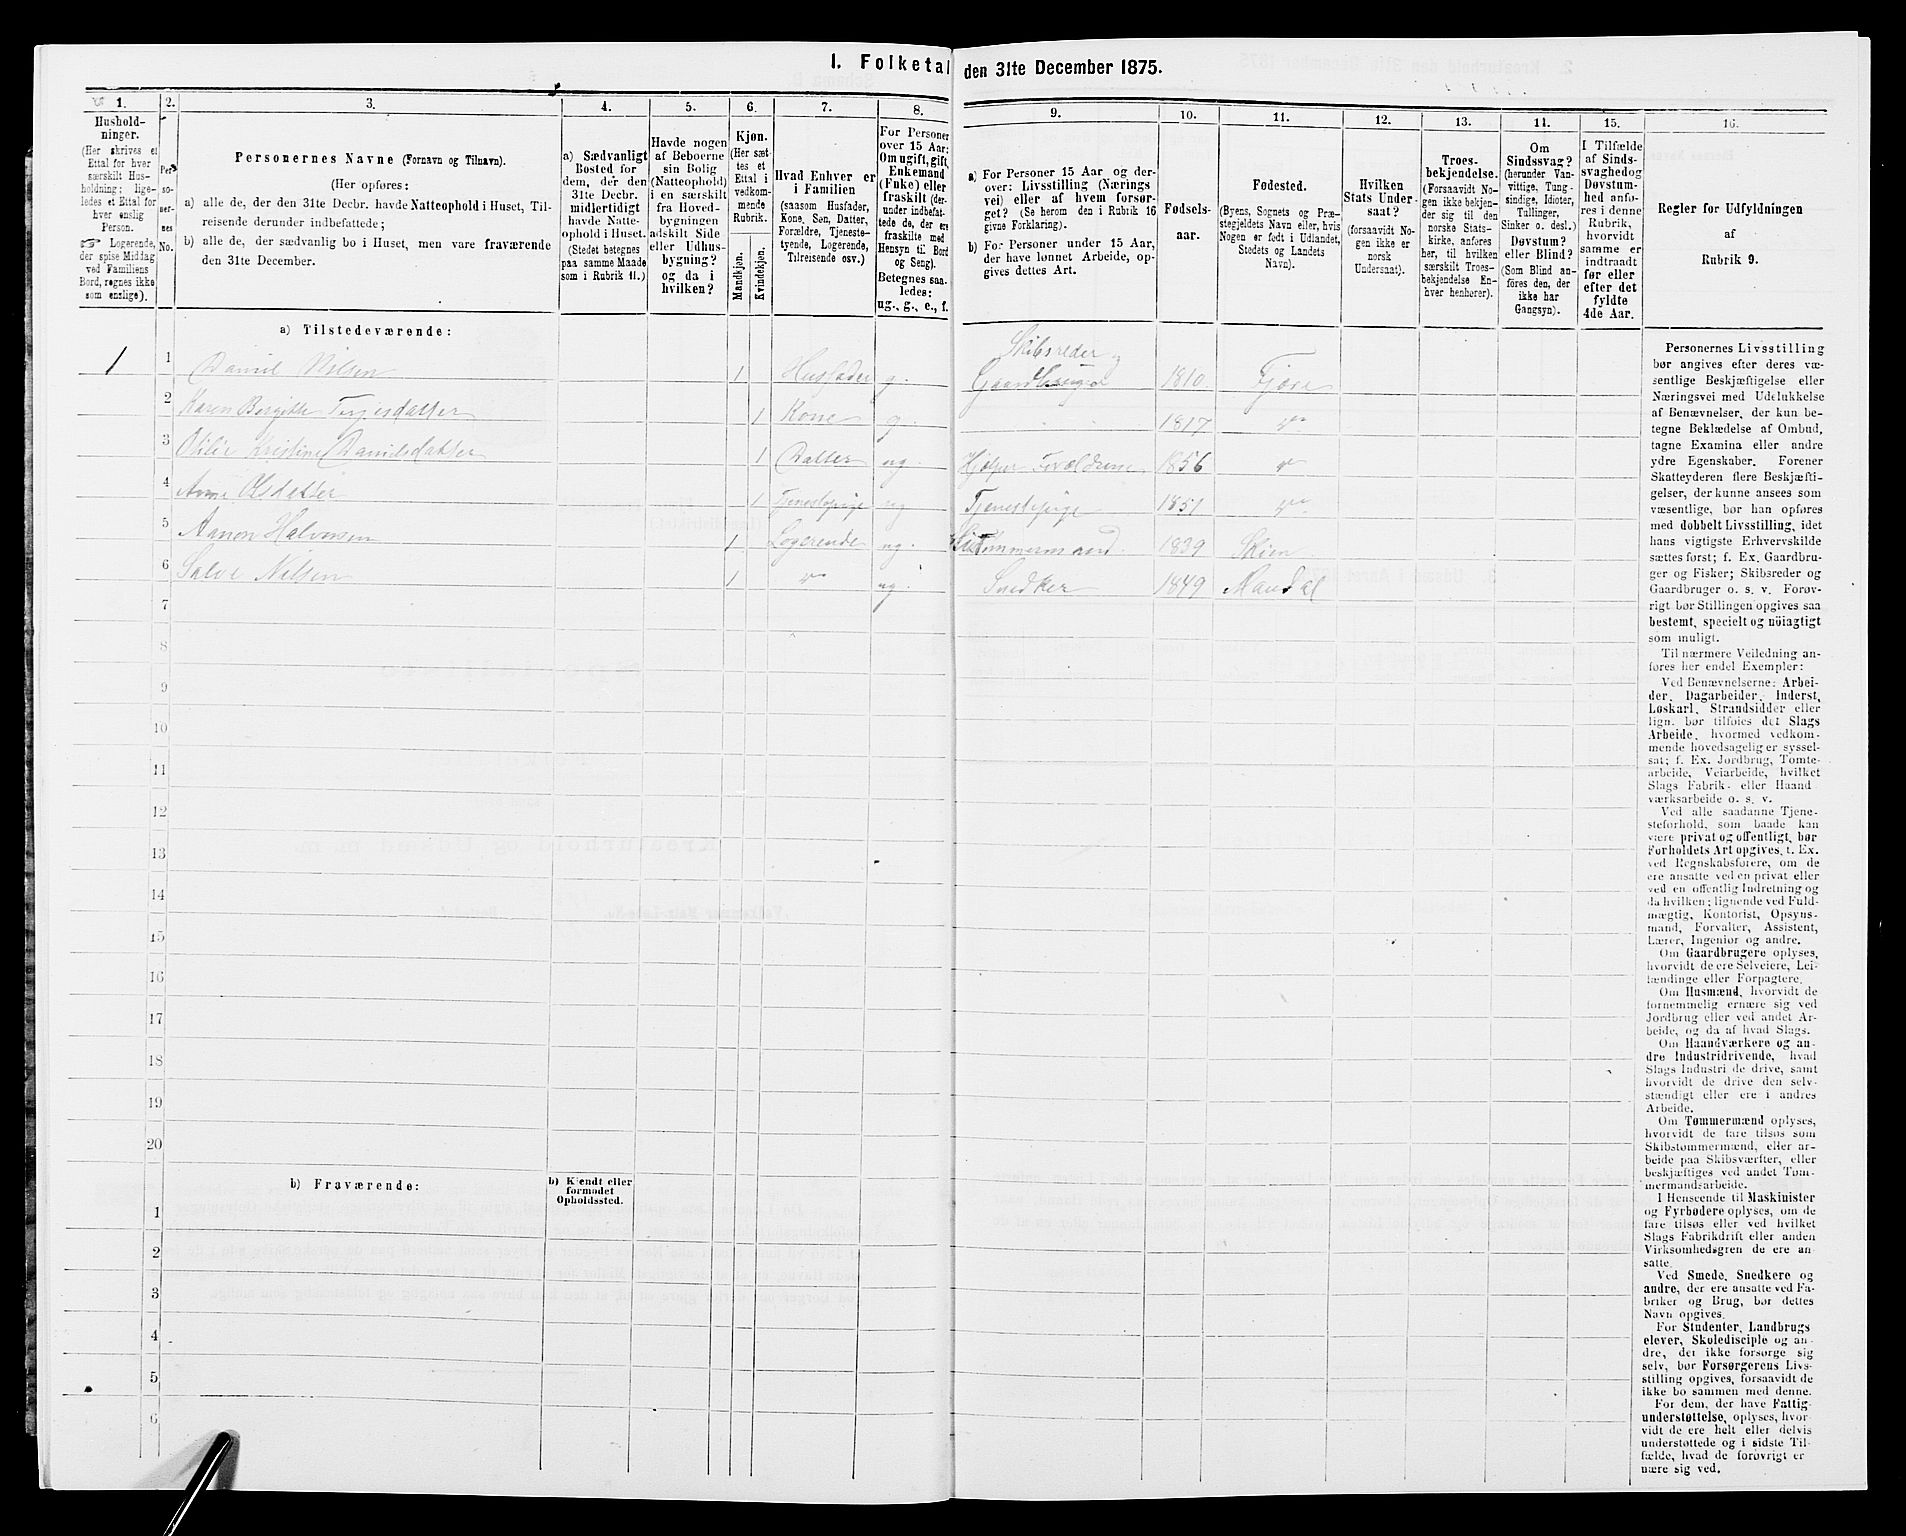 1. Folketal den 31te December 1875.
1.
Hushold-
ninger.
(Her skrives et
Ettal for hver
særskilt Hus-
holdning; lige-
ledes et Ettal for
hver enslig
Person.
☞ Logerende,
der spise Middag
ved Familiens
Bord, regnes ikke
som enslige).
2.
Per-
so-
ner-
nes
No.
3.
Personernes Navne (Fornavn og Tilnavn).
(Her opføres:
a) alle de, der den 31te Decbr. havde Natteophold i Huset, Til-
reisende derunder indbefattede;
b) alle de, der sædvanlig bo i Huset, men vare fraværende
den 31te December.
4.
a) Sædvanligt
Bosted for
dem, der den
31te Decbr.
midlertidigt
havde Natte-
ophold i Huset.
(Stedet betegnes
paa samme Maade
som i Rubrik 11.)
5.
Havde nogen
af Beboerne
sin Bolig
(Natteophold)
i en særskilt
fra Hoved-
bygningen
adskilt Side
eller Udhus-
bygning?
og da i
hvilken?
6.
Kjøn.
(Her sæt-
tes et
Ettal i
vedkom-
mende
Rubrik.
Mandkjøn.
Kvindekjøn.
7.
Hvad Enhver er
i Familien
(saasom Husfader,
Kone, Søn, Datter,
Forældre, Tjeneste-
tyende, Logerende,
Tilreisende osv.)
8.
For Personer
over 15 Aar:
Om ugift, gift,
Enkemand
(Enke) eller
fraskilt (der-
under indbefat-
tede de, der ere
fraskilte med
Hensyn til Bord
og Seng).
Betegnes saa-
ledes:
ug., g., e., f.
9.
a) For Personer 15 Aar og der-
over: Livsstilling (Nærings
vei) eller af hvem forsør-
get? (Se herom den i Rubrik 16
givne Forklaring).
b) For Personer under 15 Aar,
der have lønnet Arbeide, op-
gives dettes Art.
10.
Fødsels-
aar.
11.
Fødested.
(Byens, Sognets og Præ-
stegjeldets Navn eller, hvis
Nogen er født i Udlandet,
Stedets og Landets
Navn).
12.
Hvilken
Stats Under-
saat?
(forsaavidt No-
gen ikke er
norsk
Undersaat).
13.
Troes-
bekjendelse.
(Forsaavidt No-
gen ikke bekjen-
der sig til den
norske Stats-
kirke, anføres
her, til hvilken
særskilt Troes-
bekjendelse En-
hver henhører).
14.
Om
Sindssvag?
(herunder Van-
vittige, Tung-
sindige, Idioter,
Tullinger,
Sinker o. desl.)
Døvstum?
eller Blind?
(Som Blind an-
føres den, der
ikke har
Gangsyn).
15.
I Tilfælde
af Sinds-
svaghed og
Døvstum-
hed anfø-
res i denne
Rubrik,
hvorvidt
samme er
indtraadt
før eller
efter det
fyldte
4de Aar.
16.
Regler for Udfyldningen
af
Rubrik 9.
a) Tilstedeværende:
1 1 Daniel Nilsen 1 Husfader g. Skibsreder og Gaardbruger 1810 Fjære
2 Karen Bergitte Terjesdatter 1 Kone g. 1817
3 Otilie Kristine Danielsdatter 1 Datter ug. Hjelper Forældrene 1856
4 Anne Olsdatter 1 Tjenestepige ug Tjenestepige 1851
5 Aanon Halvorsen 1 Logerende ug. Tømmermand. 1839 Skien
6 Salve Nilsen 1 ug. Snedker 1849 Mandal
7
8
9
10
11
12
13
14
15
16
17
18
19
20
b) Fraværende:
b) Kjendt eller
formodet
Opholdssted.
1
2
3
4
5
6
Personernes Livsstilling
bør angives efter deres væ-
sentlige Beskjæftigelse eller
Næringsvei med Udelukkelse
af Benævnelser, der kun be-
tegne Beklædelse af Ombud,
tagne Examina eller andre
ydre Egenskaber. Forener
Skatteyderen flere Beskjæfti-
gelser, der kunne ansees som
væsentlige, bør han opføres
med dobbelt Livsstilling, idet
hans vigtigste Erhvervskilde
sættes først; f. Ex. Gaardbru-
ger og Fisker; Skibsreder og
Gaardbruger o. s. v. Forøv-
rigt bør Stillingen opgives saa
bestemt, specielt og nöiagtigt
som muligt.
Til nærmere Veiledning an-
føres her endel Exempler:
Ved Benævnelserne: Arbei-
der, Dagarbeider, Inderst,
Løskarl, Strandsidder eller
lign. bør tilføies det Slags
Arbeide, hvormed vedkom-
mende hovedsagelig er syssel-
sat; f. Ex. Jordbrug, Tomte-
arbeide, Veiarbeide, hvilket
Slags Fabrik- eller Haand
værksarbeide o. s. v.
Ved alle saadanne Tjene-
steforhold, som baade kan
være privat og offentligt, bør
Forholdets Art opgives, t. Ex.
ved Regnskabsførere, om de
ere ansatte ved en privat eller
ved en offentlig Indretning og
da hvilken; lignende ved Fuld-
mægtig, Kontorist, Opsyns-
mand, Forvalter, Assistent,
Lærer, Ingeniør og andre.
Om Gaardbrugere oplyses,
hvorvidt de ere Selveiere, Lei-
lændinge eller Forpagtere.
Om Husmænd, hvorvidt de
fornemmelig ernære sig ved
Jordbrug eller ved andet Ar-
beide, og da af hvad Slags.
Om Haandværkere og an-
dre Industridrivende, hvad
Slags Industri de drive, samt
hvorvidt de drive den selv-
stændigt eller ere i andres
Arbeide.
Om Tømmermænd oplyses,
hvorvidt de fare tilsøs som
Skibstømmermænd, eller ar-
beide paa Skibsværfter, eller
beskjæftiges ved andet Tøm-
mermandsarbeide.
I Henseende til Maskinister
og Fyrbødere oplyses, om de
fare tilsøs eller ved hvilket
Slags Fabrikdrift eller anden
Virksomhedsgren de ere an-
satte.
Ved Smede, Snedkere og
andre, der ere ansatte ved Fa-
briker og Brug, bør dettes
Navn opgives.
For Studenter, Landbrugs
elever, Skoledisciple og an-
dre, der ikke forsørge sig
selv, bør Forsørgerens Livs-
stilling opgives, forsaavidt de
ikke bo sammen med denne.
For dem, der have Fattig-
understøttelse, oplyses, hvor-
vidt de ere helt eller delvis
understøttede og i sidste Til-
fælde, hvad de forøvrigt er
nære sig ved.